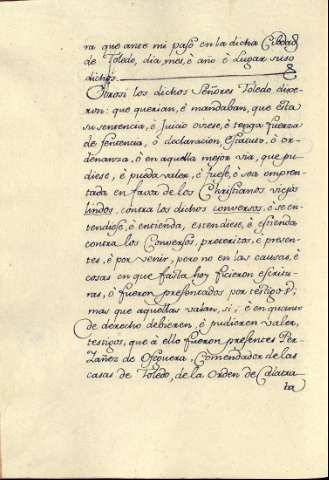 ra que ante mi pasó en la dicha Cibdad
de Toledo, dia, mes, è año è Lugar suso
dichos.
Otrosi los dichos Señores Toledo dixe-
ron: que querian, è mandaban, que esta
su sentencia, è Juicio oviese, è tenga fuerza
de sentencia, ò declaracion, estatuto, ò or-
denanza, ò en aquella mejor via, que pu-
diese, è pueda valer, è fuese, è sea ampren-
tada en favor de los Christianos viejos
lindos, contra los dichos conversos, è se en-
tendiese, è entienda, estendiese, è estienda
contra los Conversos, preteritos, è presen-
tes, è por venir, pero no en las causas, è
cosas en que fasta hoy ficieron escritu-
ras, ò fueron presentados por testigos;
mas que aquellas valan, si, è en quanto
de derecho debieren, è pudieren valer,
testigos, que à ello fueron presentes Per
Zañez de Oseguera, Comendador de las
casas de Toledo, de la Orden de Calatra-
va